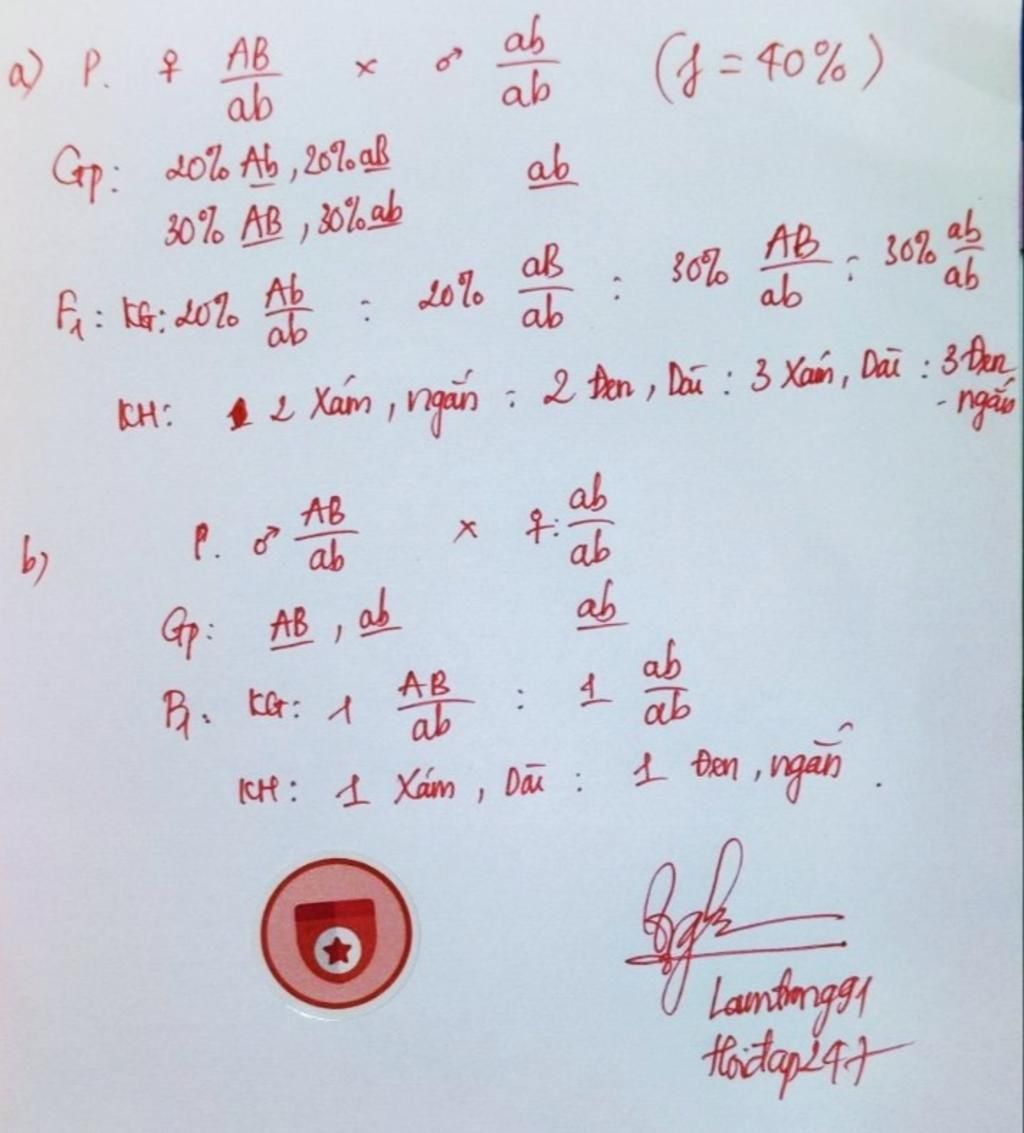 a) P. ♀ AB/ab × ♂ ab/ab (f = 40%)
Gp: 20% Ab, 20% aB ab
30% AB, 30% ab
F1: KG: 20% Ab/ab : 20% aB/ab : 30% AB/ab : 30% ab/ab
KH: 2 Xám, ngắn : 2 Đen, Dài : 3 Xám, Dài : 3 Đen
- ngắn
b) P. ♂ AB/ab × ♀: ab/ab
Gp: AB, ab ab
F1: KG: 1 AB/ab : 1 ab/ab
KH: 1 Xám, Dài : 1 Đen, ngắn.
Lamtrong91
Hoidap247